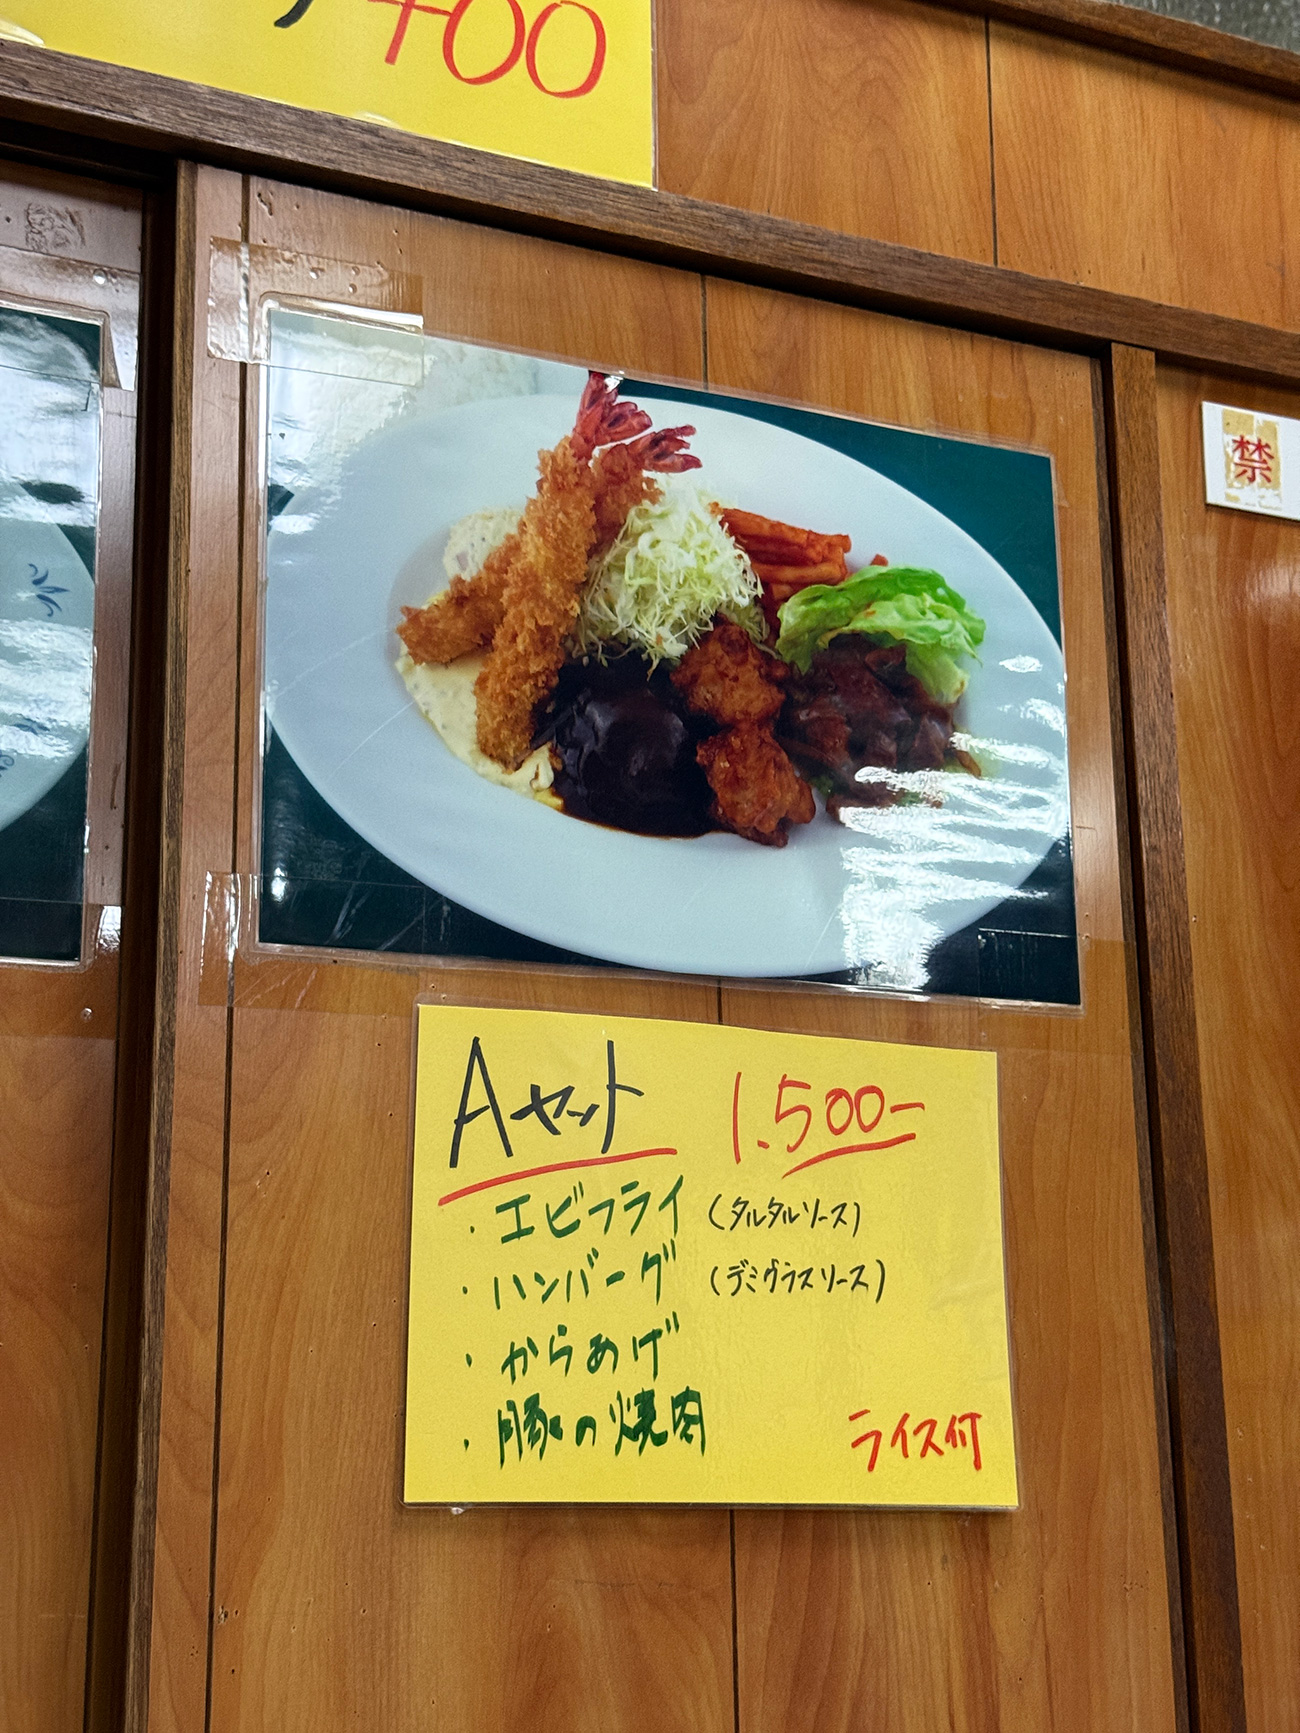 Aセット 1.500-
・エビフライ (タルタルソース)
・ハンバーグ (デミグラスソース)
・からあげ
・豚の焼肉
ライス付
禁